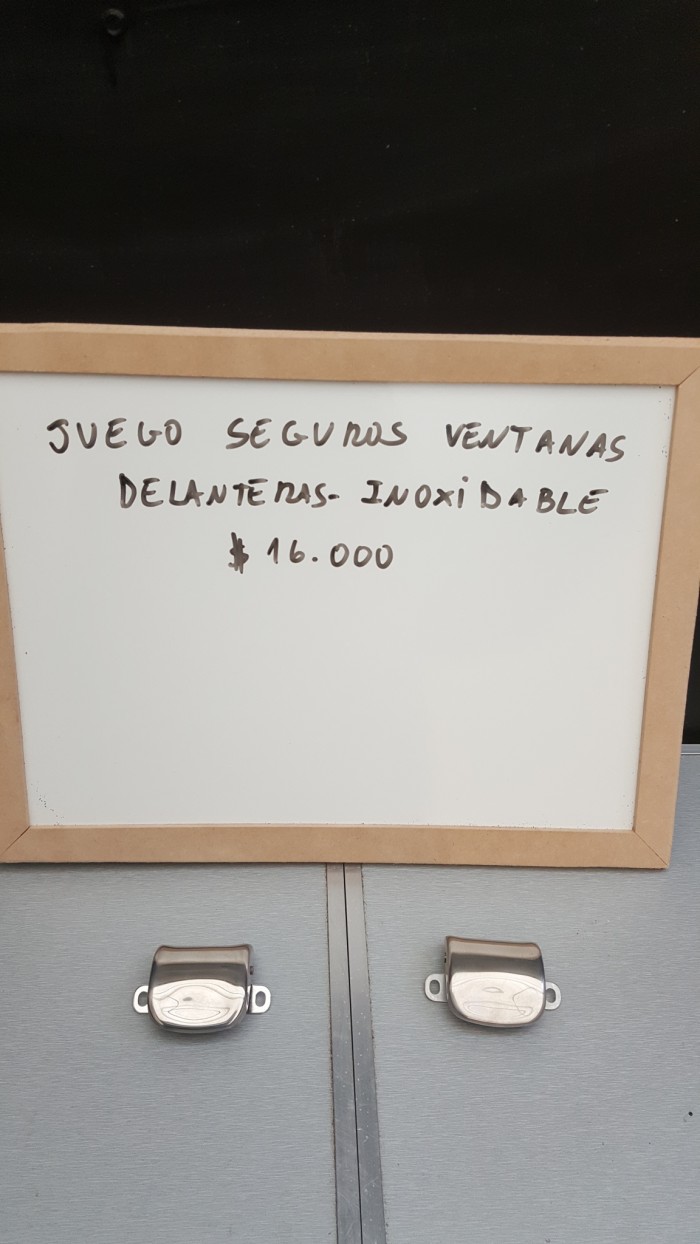 JUEGO SEGUROS VENTANAS
DELANTERAS- INOXiDABLE
$ 16.000